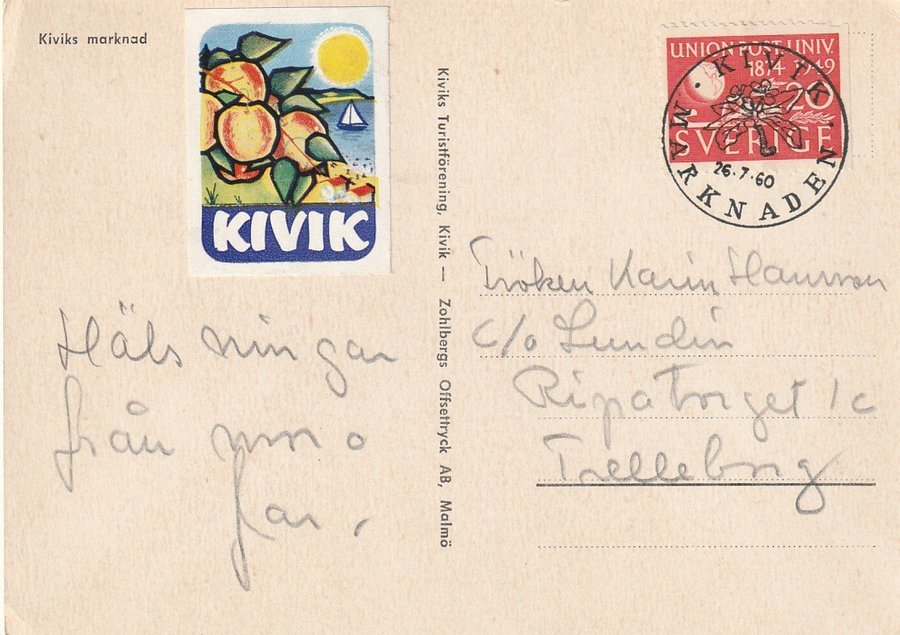 Kiviks marknad
KIVIK
Hälsningar
från mor o
far.
Kiviks Turistförening, Kivik — Zohlbergs Offsettryck AB, Malmö
UNION POST. UNIV.
1874 1949
20
SVERIGE
· KIVIK · MARKNADEN
26.7.60
Fröken Karin Hansson
c/o Lundin
Ripatorget 1c
Trelleborg